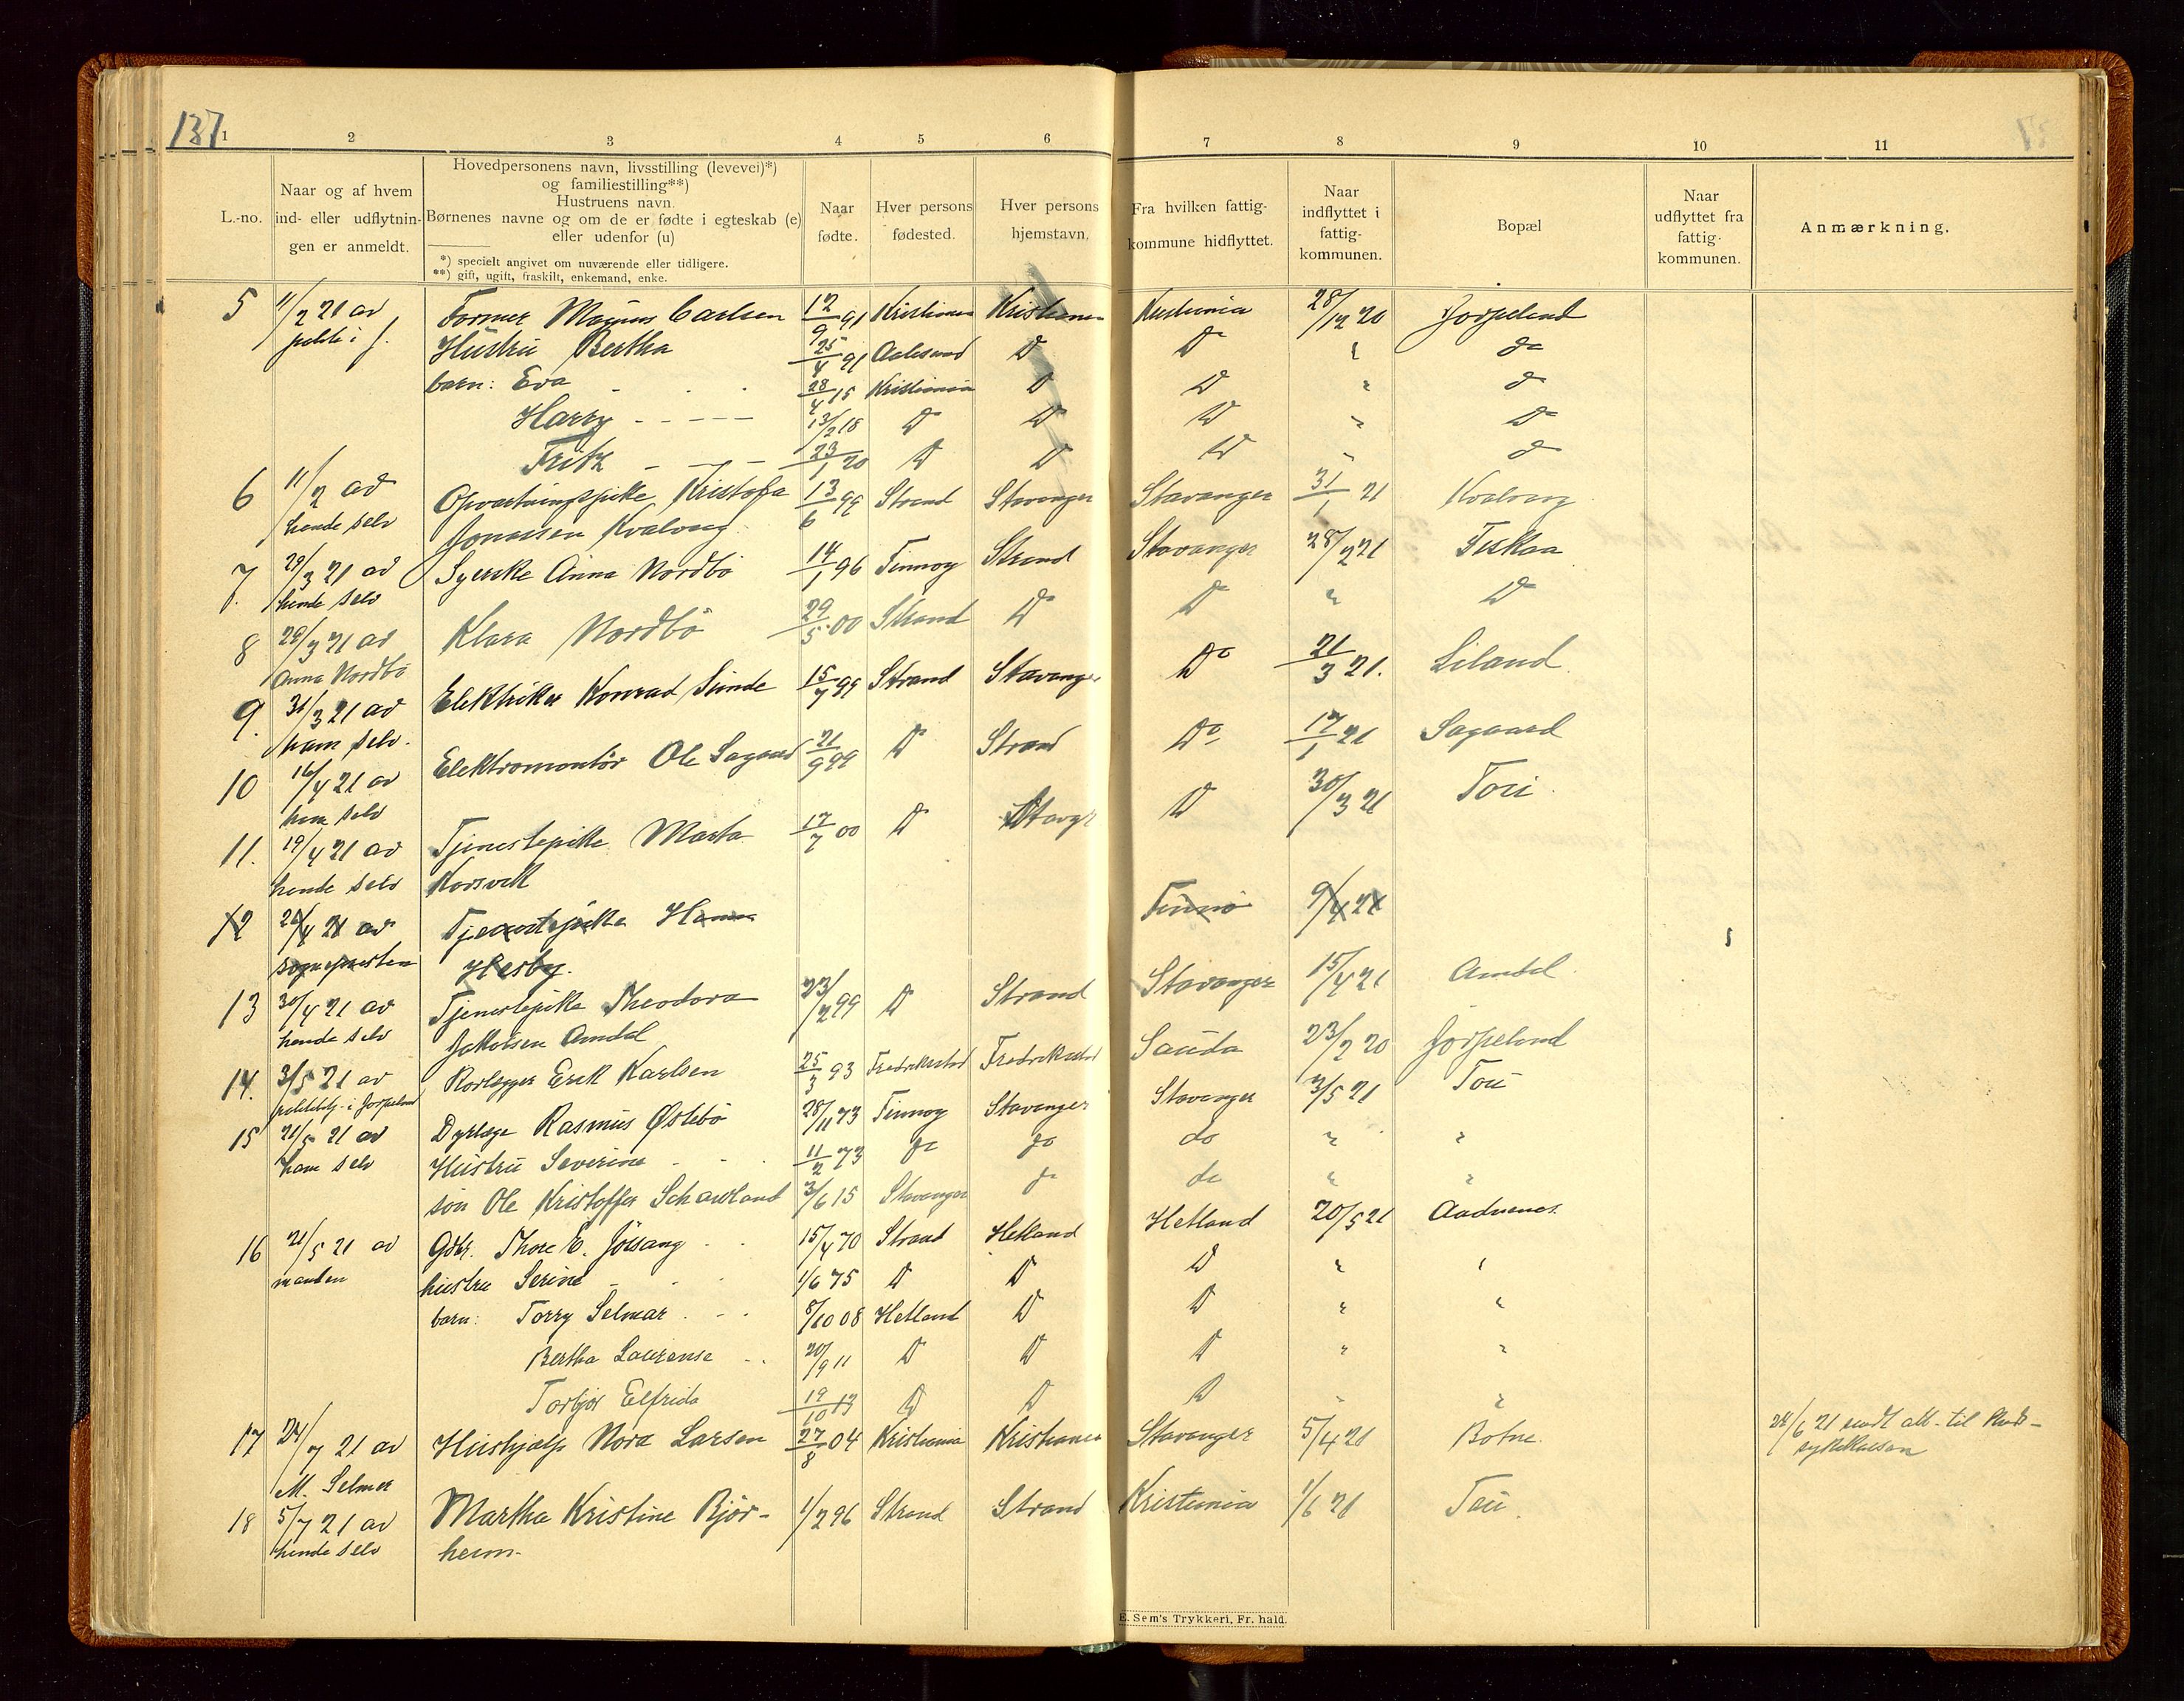 137
1 2 3 4 5 6 7 8 9 10 11
L.-no.
Naar og af hvem
ind- eller udflytnin-
gen er anmeldt.
Hovedpersonens navn, livsstilling (levevei)*)
og familiestilling**)
Hustruens navn.
Børnenes navne og om de er fødte i egteskab (e)
eller udenfor (u)
*) specielt angivet om nuværende eller tidligere.
**) gift, ugift, fraskilt, enkemand, enke.
Naar
fødte.
Hver persons
fødested.
Hver persons
hjemstavn.
Fra hvilken fattig-
kommune hidflyttet.
Naar
indflyttet i
fattig-
kommunen.
Bopæl
Naar
udflyttet fra
fattig-
kommunen.
Anmærkning.
5 11/2 21 av Former Magnus Carlsen 12/9 91 Kristiania Kristiania Kristiania 28/12 20 Jørpeland
Hustru Bertha 25/4 91 Aalesund Do Do " do
barn: Eva 28/4 15 Kristiania Do Do " do
Harry 13/2 18 Do Do Do " Do
Fritz 23/1 20 Do Do Do " do
6 11/2 av Opvartningspike Kristofa 13/6 99 Strand Stavanger Stavanger 31/1 21 Kvalvaag
hende selv Jonassen Kvalvaag
7. 29/3 21 av Syerske Anna Nordbö 14/1 96 Finnoy Strand Stavanger 28/2 21 Fiskaa
hende selv
8 29/3 21 av Klara Nordbö 29/5 00 Strand Do Do " Do
Anna Nordbö
9. 31/3 21 av Elektriker Konrad Sunde 15/7 99 Strand Stavanger Do 21/3 21. Liland
ham selv.
10 16/4 21 av Elektromontör Ole Sagaard 21/9 99 Do Strand Do 17/1 21 Sagaard
ham selv
11. 19/4 21 av Tjenestepike Marta 17/7 00 Do Stavgr Do 30/3 21 Tou
hende selv Korsvik
12 26/4 21 av Tjenestepike Hanna Finnö 9/4 21
sognepresten Hesby.
13 30/4 21 av Tjenestepike Theodora 23/2 99 Do Strand Stavanger 15/4 21 Amdal
hende selv Jakobsen Amdal
14. 3/5 21 av Rorlegger Erik Karlsen 25/3 93 Fredrikstad Fredrikstad Sauda 23/2 20 Jörpeland
15 21/5 21 av Dyrlæge Rasmus Östebö 28/11 73 Finnoy Stavanger Stavanger 3/5 21 Tou
ham selv Hustru Severine 11/2 73 do do do " "
sön Ole Kristoffer Schawland 3/6 15 Stavanger do do " "
16 21/5 21 av Gdbr. Thore E. Jössang 15/4 70 Strand Hetland Hetland 20/5 21 Aadnenes.
manden hustru Serine 1/6 75 Do Do Do " "
barn: Torry Selmar 8/10 08 Hetland Do Do " "
Bertha Laurense 20/9 11 Do Do Do " "
Torbjör Elfrida 19/10 13 Do Do Do " "
17 24/7 21 av Hushjælp Nora Larsen 27/8 04 Kristiania Kristiania Stavanger 5/4 21 Botne. 24/6 21 sendt att. til
M. Selmer
18 5/7 21 av Martha Kristine Björ- 1/2 96 Strand Strand Kristiania 1/6 21 Tou.
hende selv heim.
E. Sem's Trykkeri, Fr. hald.